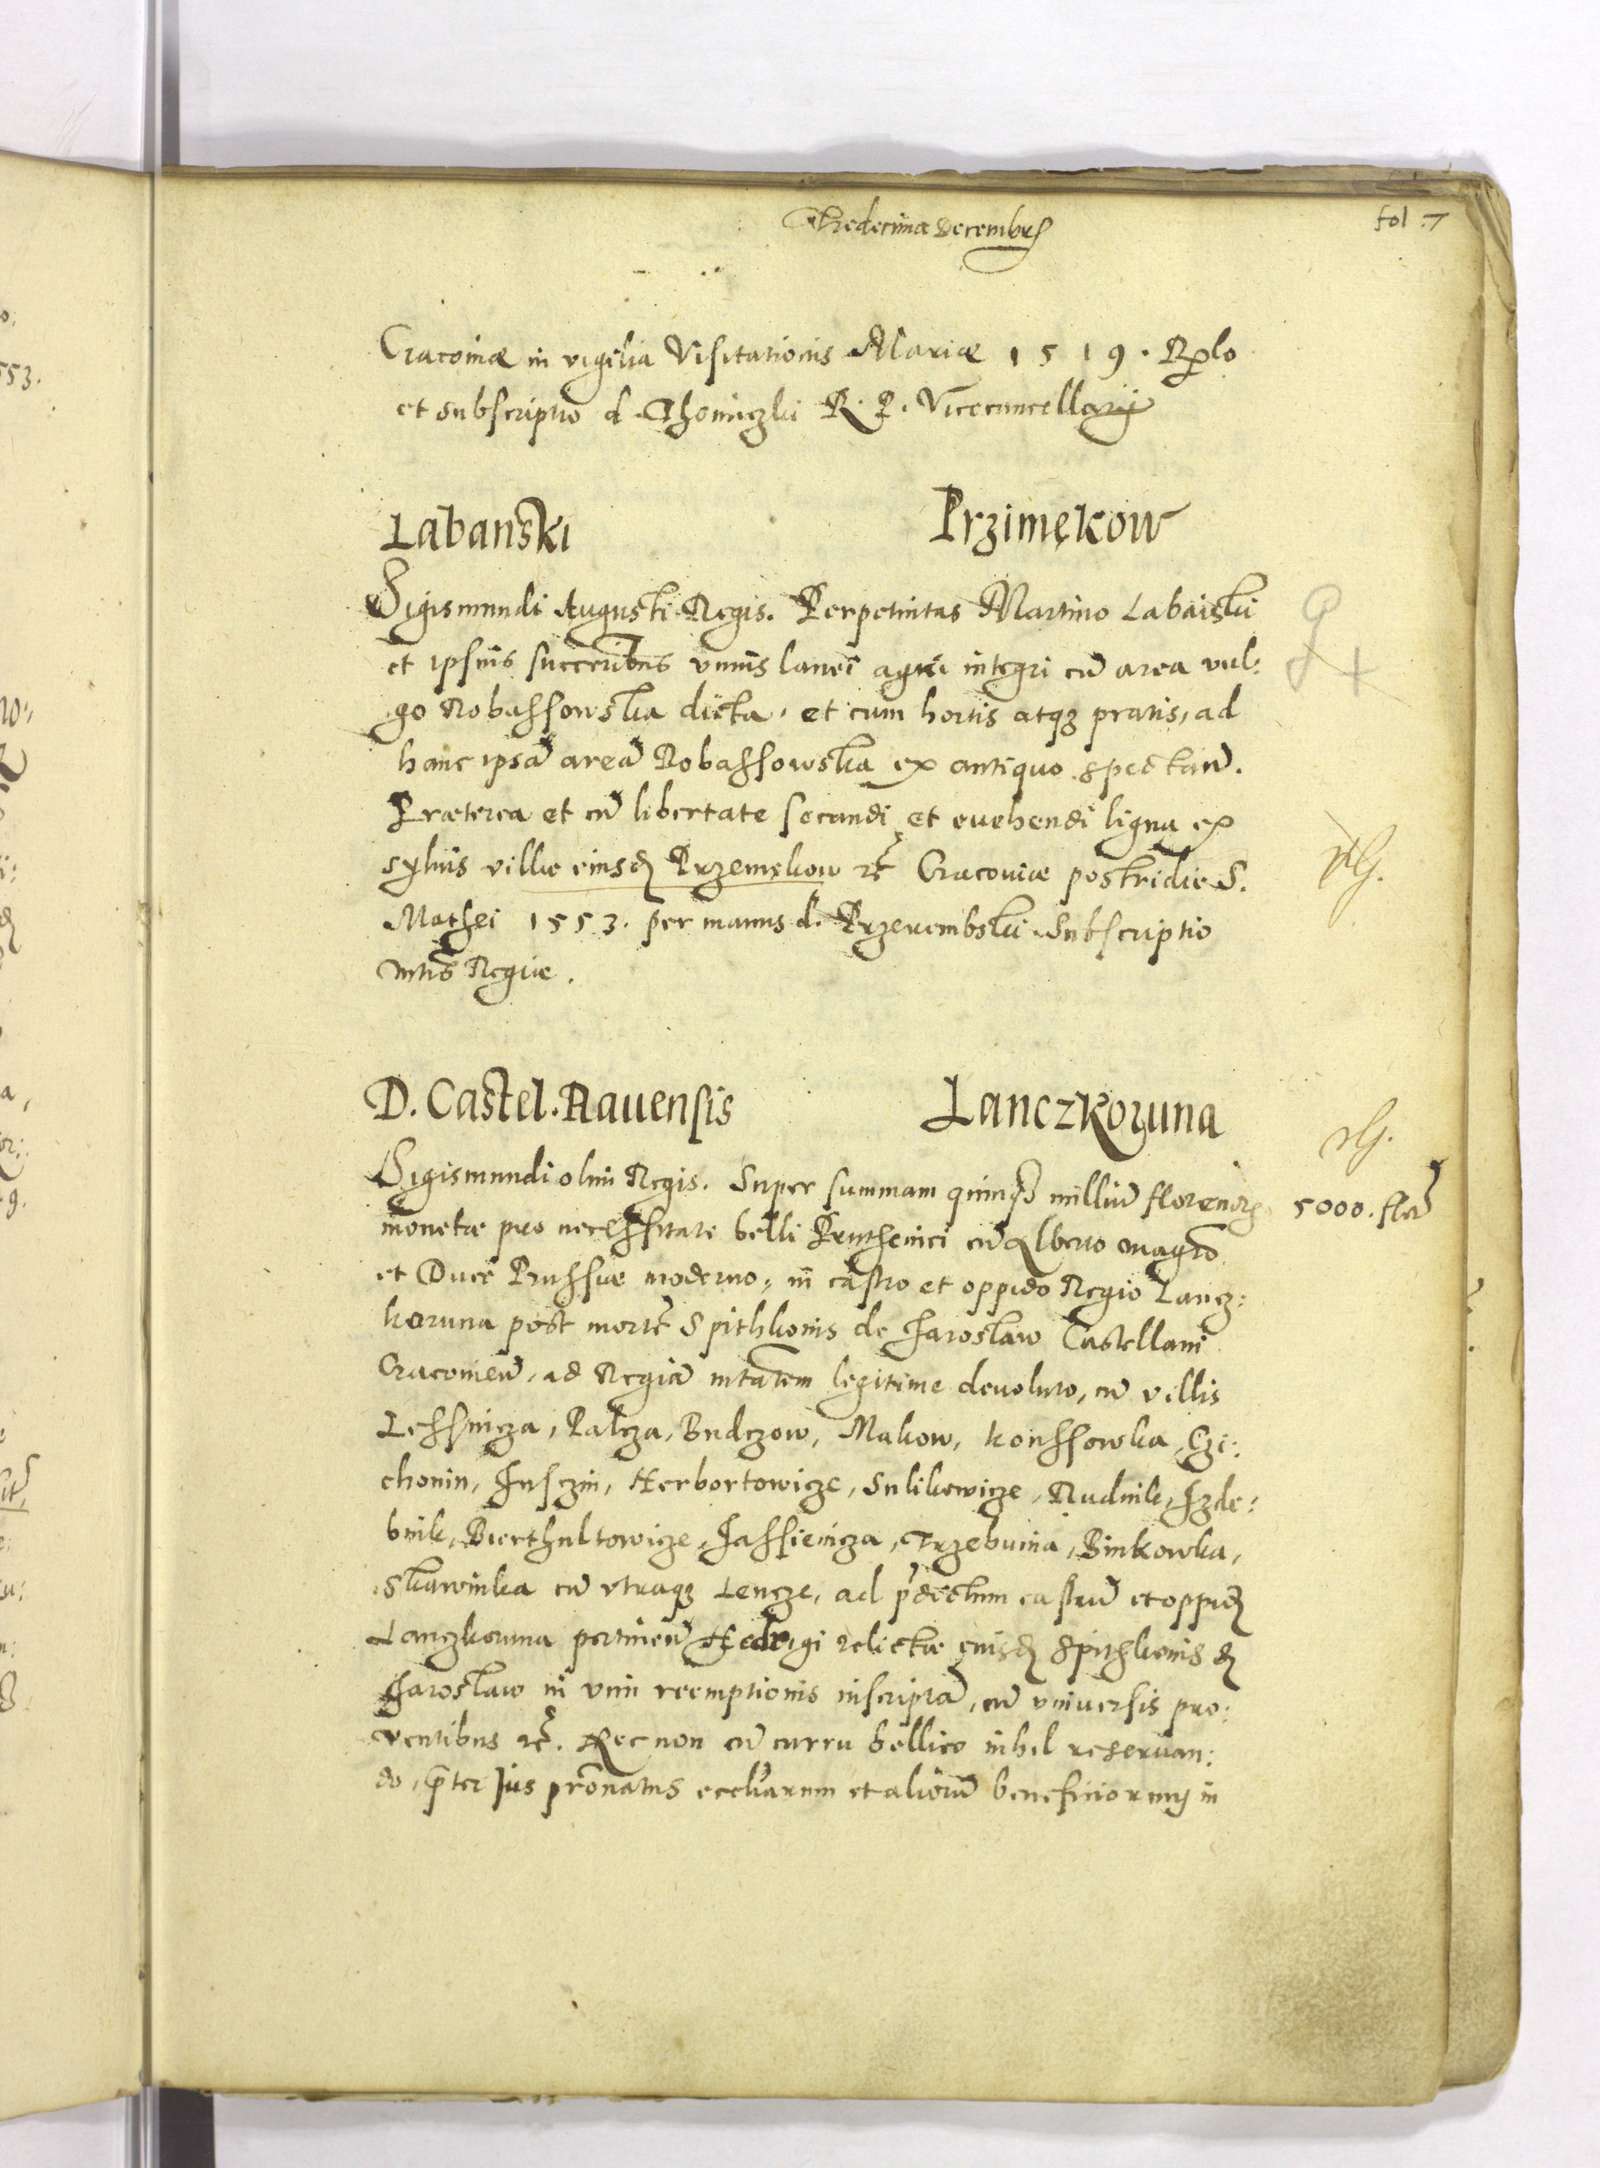 Thredecima Decembris
fol. 7
Cracoviæ in vigilia Visitationis Mariæ 1519. Rᵽlo
et subscriptio d. Thomiczki R. P. Vicecancellarij
Labanski Przimękow
Sigismundi Augusti Regis. Perpetuitas Martino Labaiski
et ipsius succeribus vnius lanei agri integri cū area vul:
go Robassowska dicta. et cum hortis atqꝫ pratis, ad
hanc ipsā areā Robassowska ex antiquo spectan̄.
Præterea et cū libertate secandi et euehendi ligna ex
syluis villæ eiusd Przemękow rc̄ Cracouiæ postridie S.
Mathei 1553. per manus d. Przerembski Subscriptio
mtis Regiæ.
D. Castel. Rauensis Lanczkoruna
Sigismundi olim Regis. Super summam quinqꝫ milliū florenoꝝ 5000. flor̄
monetæ pro necessitate belli Pruthenici cū Alberto magro
et Duce Prussiæ moderno, in castro et oppido Regio Lancz:
koruna post mortē Spithkonis de Jaroslaw Castellani
Cracouien̄, ad Regiā mtatem legitime deuoluto, cū villis
Lessnicza, Palcza, Budczow, Makow, konssowka, Czi:
chonin, Jusczin, Herbortowicze, Sulikowicze, Rudnik, Jzde:
bnik, Bierthultowicze, Jassienicza, Trzebunia, Binkowka,
Skawinka cū vtraqꝫ Lencze, ad p̄dictum castrū et oppid
Lanczkoruna pertinen̄ Hedvigi relictæ eiusd Spithkonis d
Jaroslaw in vim reemptionis inscriptā, cū vniuersis pro:
ventibus rc̄. Necnon cū curru bellico nihil reseruan:
do, p̄ter Jus pr̄onatus eccliarum et aliorū beneficiorum in